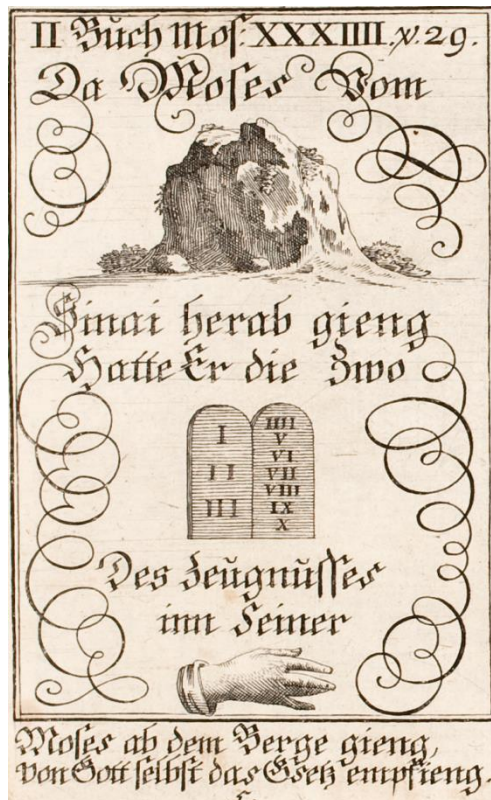 II Buch Mos: XXXIIII. v. 29.
Da Moses Vom
Sinai herab gieng
Hatte Er die Zwo
I
II
III
IIII
V
VI
VII
VIII
IX
X
Des Zeugnusses
inn Seiner
Moses ab dem Berge gieng,
von Gott selbst das Gsetz empfieng.